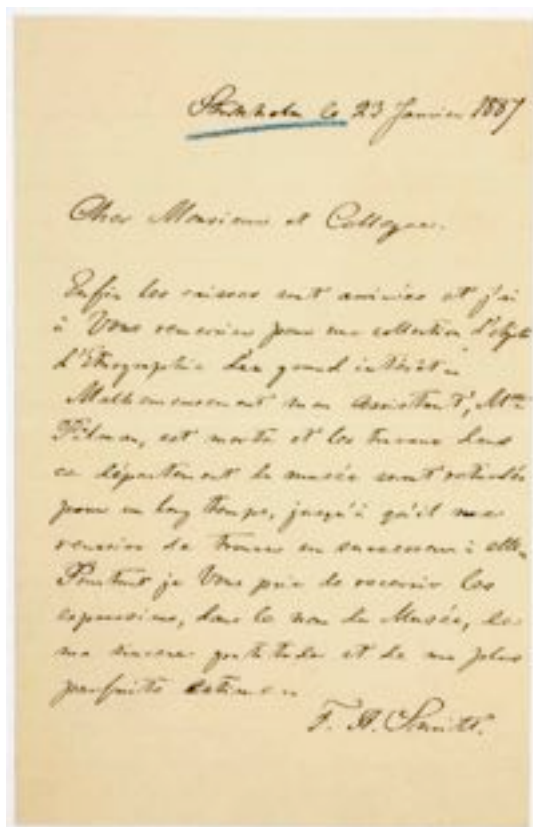 Stockholm le 23 Janvier 1887
Cher Monsieur et Collegue.
Enfin les caisses sont arrivées et j'ai
à Vous remercier pour une collection d'objets
d'Ethnographie d'un grand intérêt.
Malheureusement mon assistant, Mlle
est morte et les travaux dans
ce département du musée sont retardés
pour un long temps, jusqu'à qu'il me
de trouver un successeur à elle.
Pourtant je Vous prie de recevoir les
expressions, dans le nom du Musée, de
ma sincère gratitude et de ma plus
parfaite estime
F. A. Smitt.